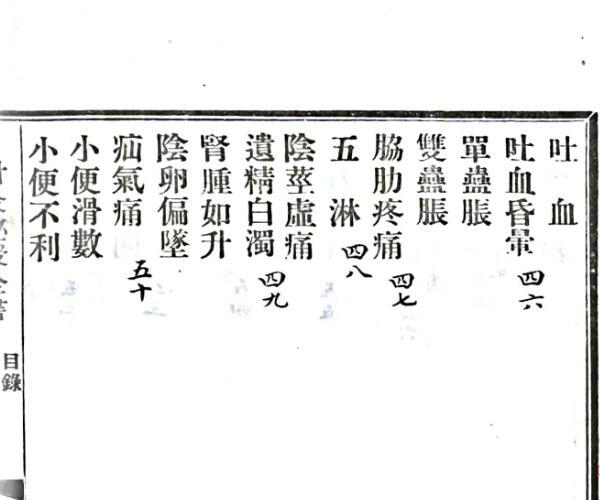 吐血
吐血昏暈 四六
單蠱脹
雙蠱脹
脇肋疼痛 四七
五淋 四八
陰莖虛痛
遺精白濁 四九
腎腫如升
陰卵偏墜
疝氣痛 五十
小便滑數
小便不利
目錄